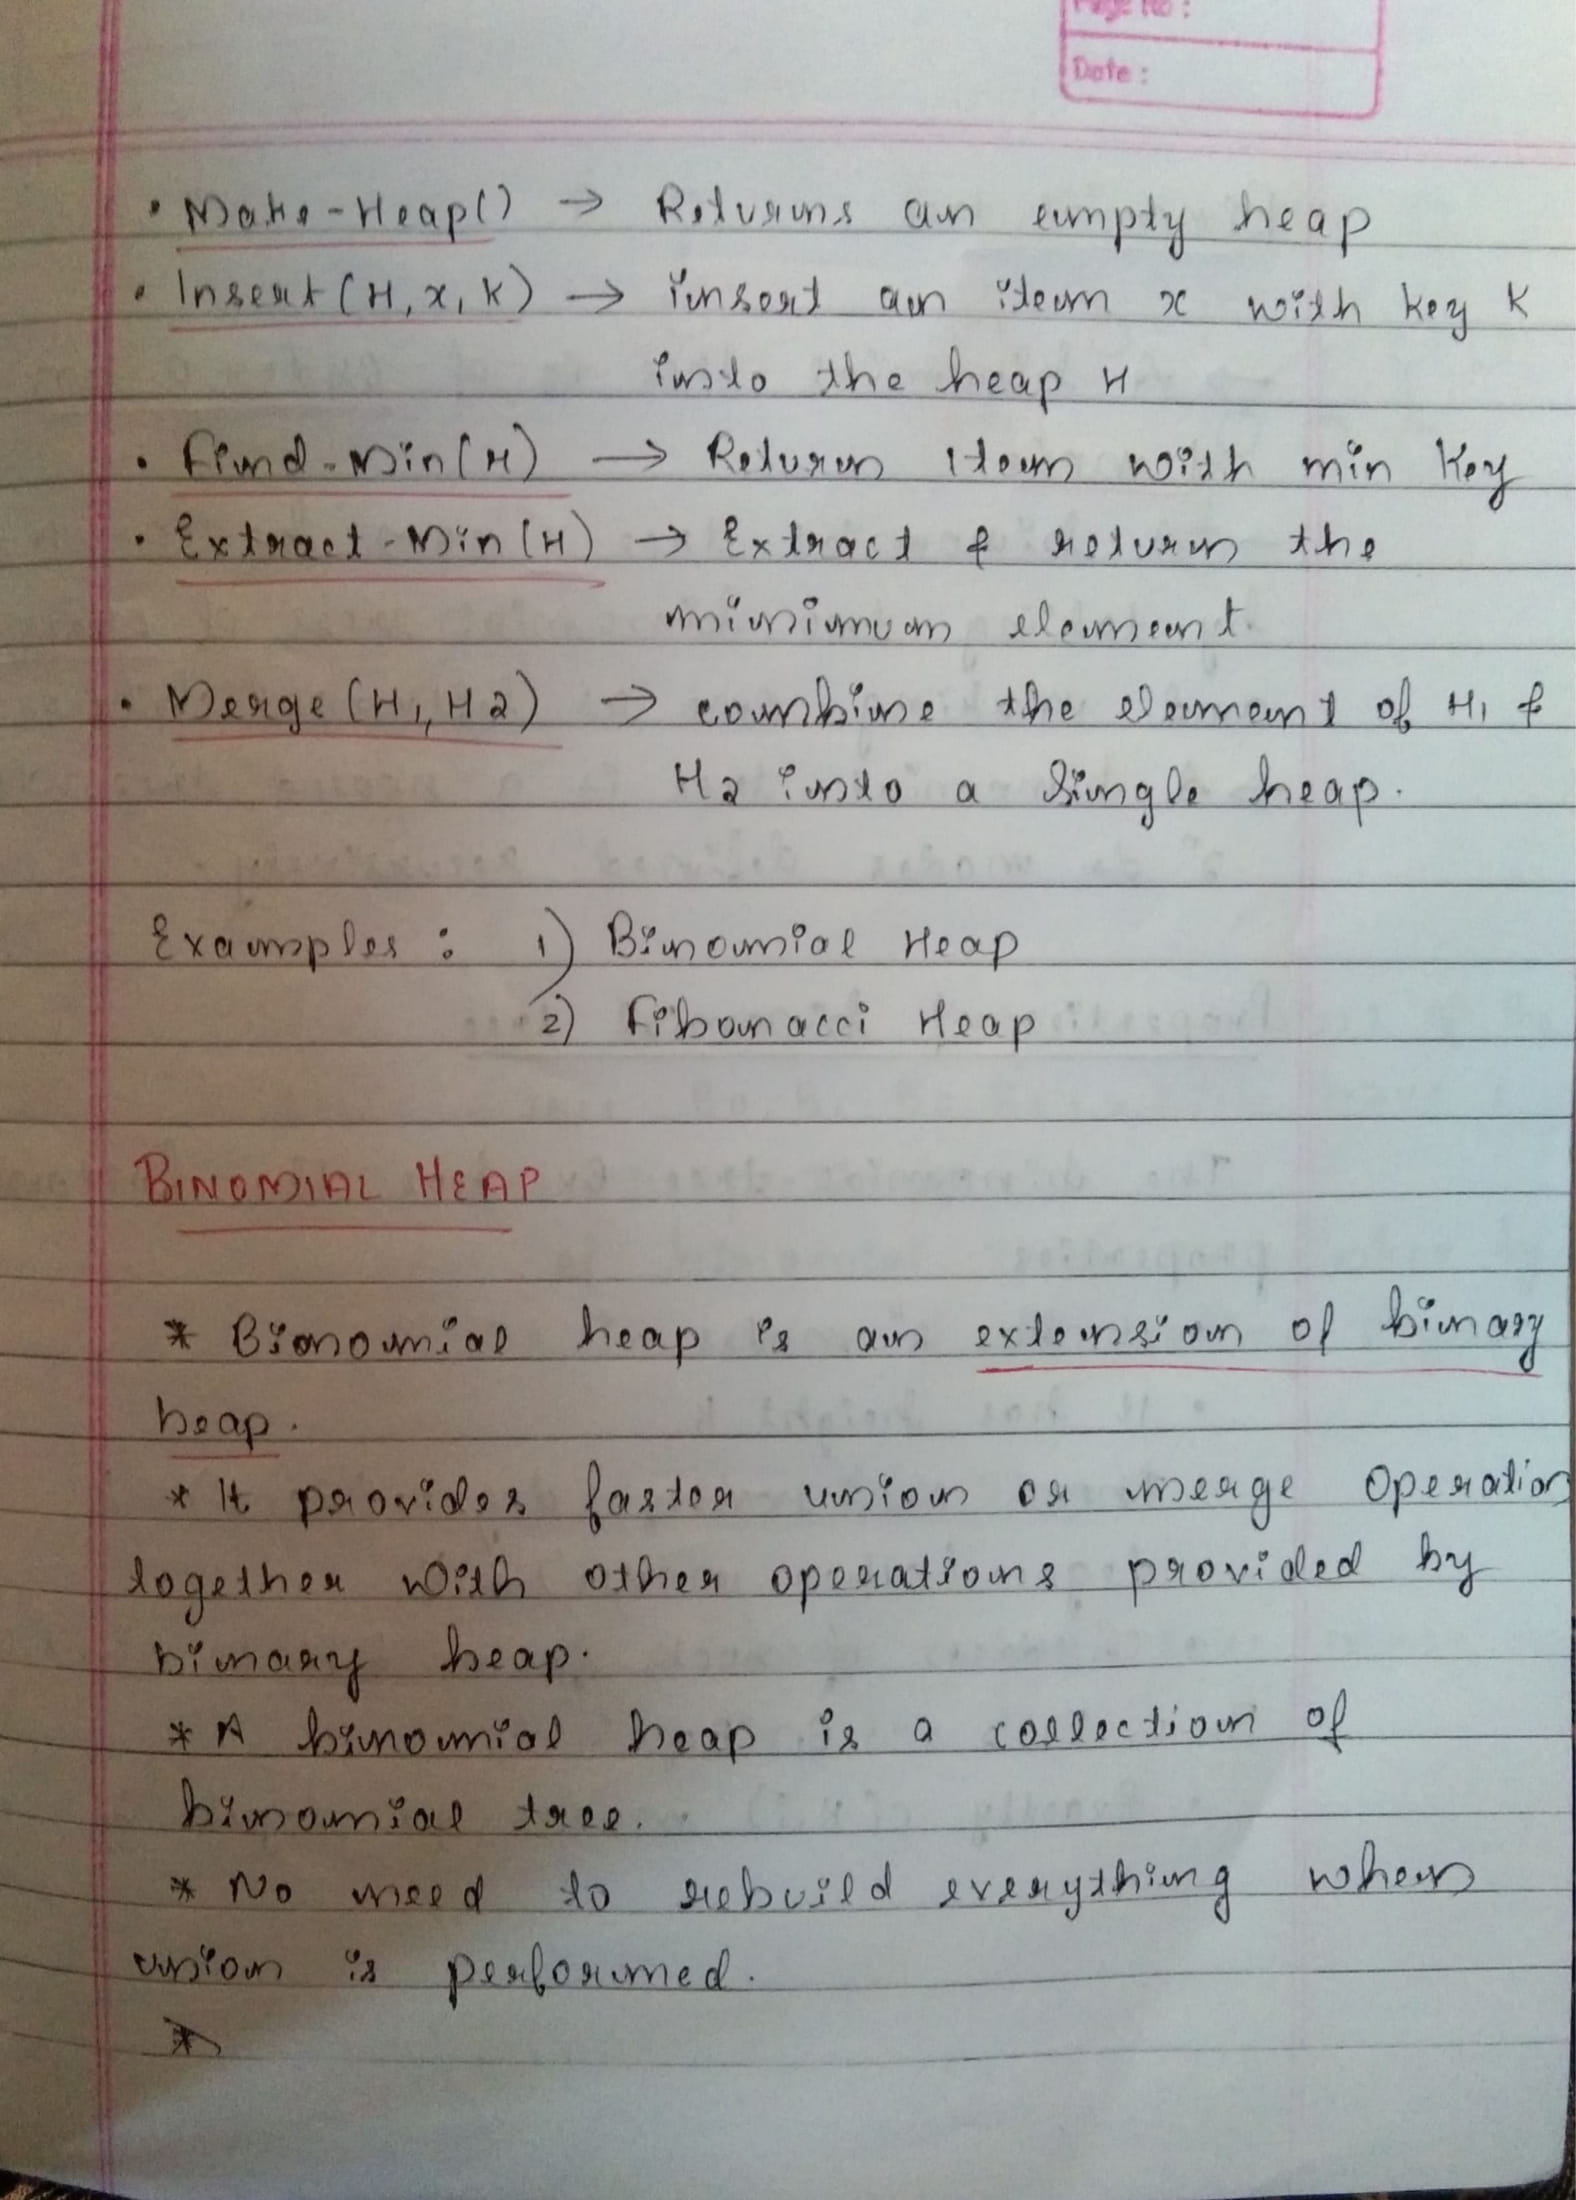 Page No :
Date :
• Make-Heap() → Returns an empty heap
• Insert (H, x, K) → insert an item x with key K
into the heap H
• Find-Min(H) → Return Item with min Key
• Extract-Min(H) → Extract & return the
minimum element.
• Merge (H1, H2) → combine the element of H1 &
H2 into a Single heap.
Examples : 1) Binomial Heap
2) Fibonacci Heap
BINOMIAL HEAP
* Binomial heap is an extension of binary
heap.
* It provides faster union or merge operation
together with other operations provided by
binary heap.
* A binomial heap is a collection of
binomial tree.
* No need to rebuild everything when
union is performed.
*